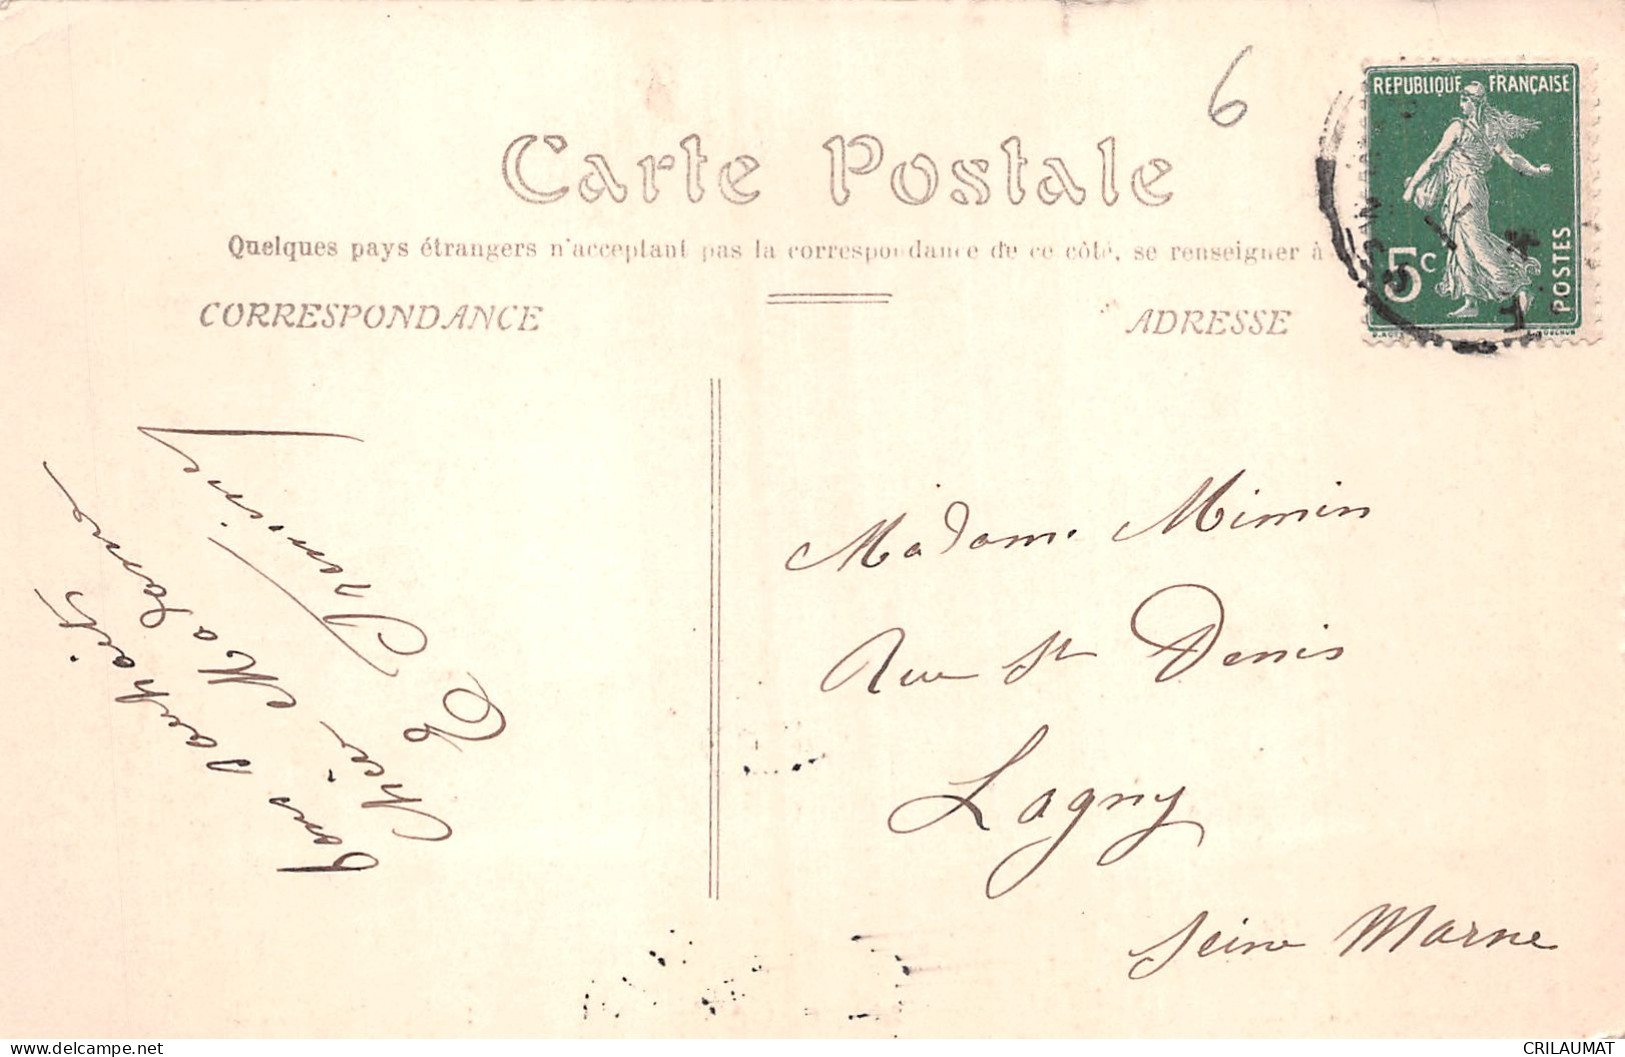 6
REPUBLIQUE FRANÇAISE
5c
POSTES
Carte Postale
Quelques pays étrangers n'acceptant pas la correspondance de ce côté, se renseigner à
CORRESPONDANCE
ADRESSE
bons souhaits
chère Madame
Madame Mimin
Rue St Denis
Lagny
Seine Marne
CRILAUMAT